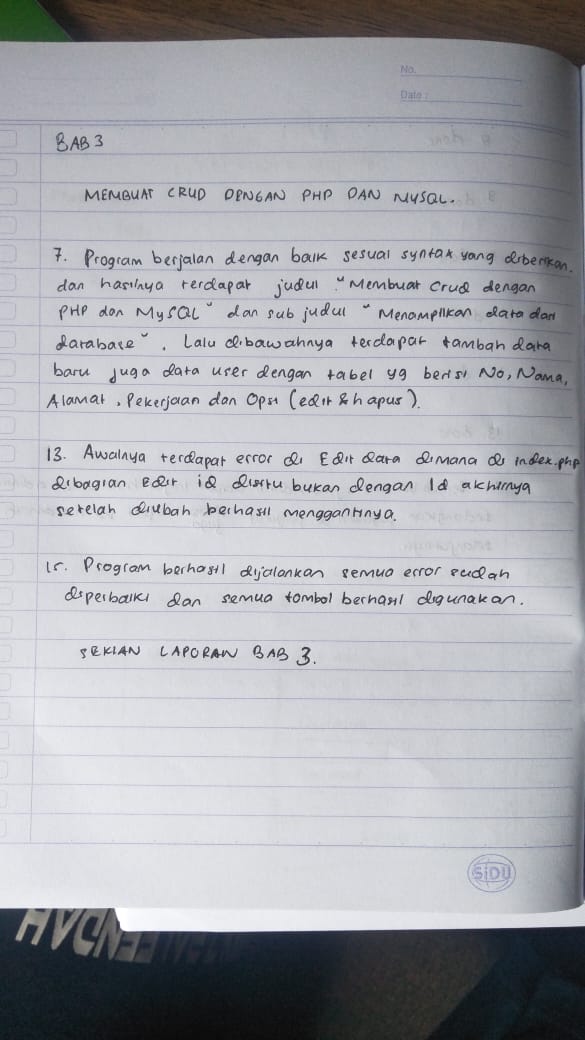 No.
Date :
BAB 3
MEMBUAT CRUD DENGAN PHP DAN MYSQL.
7. Program berjalan dengan baik sesuai syntax yang diberikan.
dan hasilnya terdapat judul "Membuat Crud dengan
PHP dan MySQL" dan sub judul "Menampilkan data dari
database". Lalu dibawahnya terdapat tambah data
baru juga data user dengan tabel yg berisi No, Nama,
Alamat, Pekerjaan dan Opsi (edit & hapus).
13. Awalnya terdapat error di Edit data dimana di index.php
dibagian Edit id disitu bukan dengan Id akhirnya
setelah diubah berhasil menggantinya.
15. Program berhasil dijalankan semua error sudah
diperbaiki dan semua tombol berhasil digunakan.
SEKIAN LAPORAN BAB 3.
SiDU